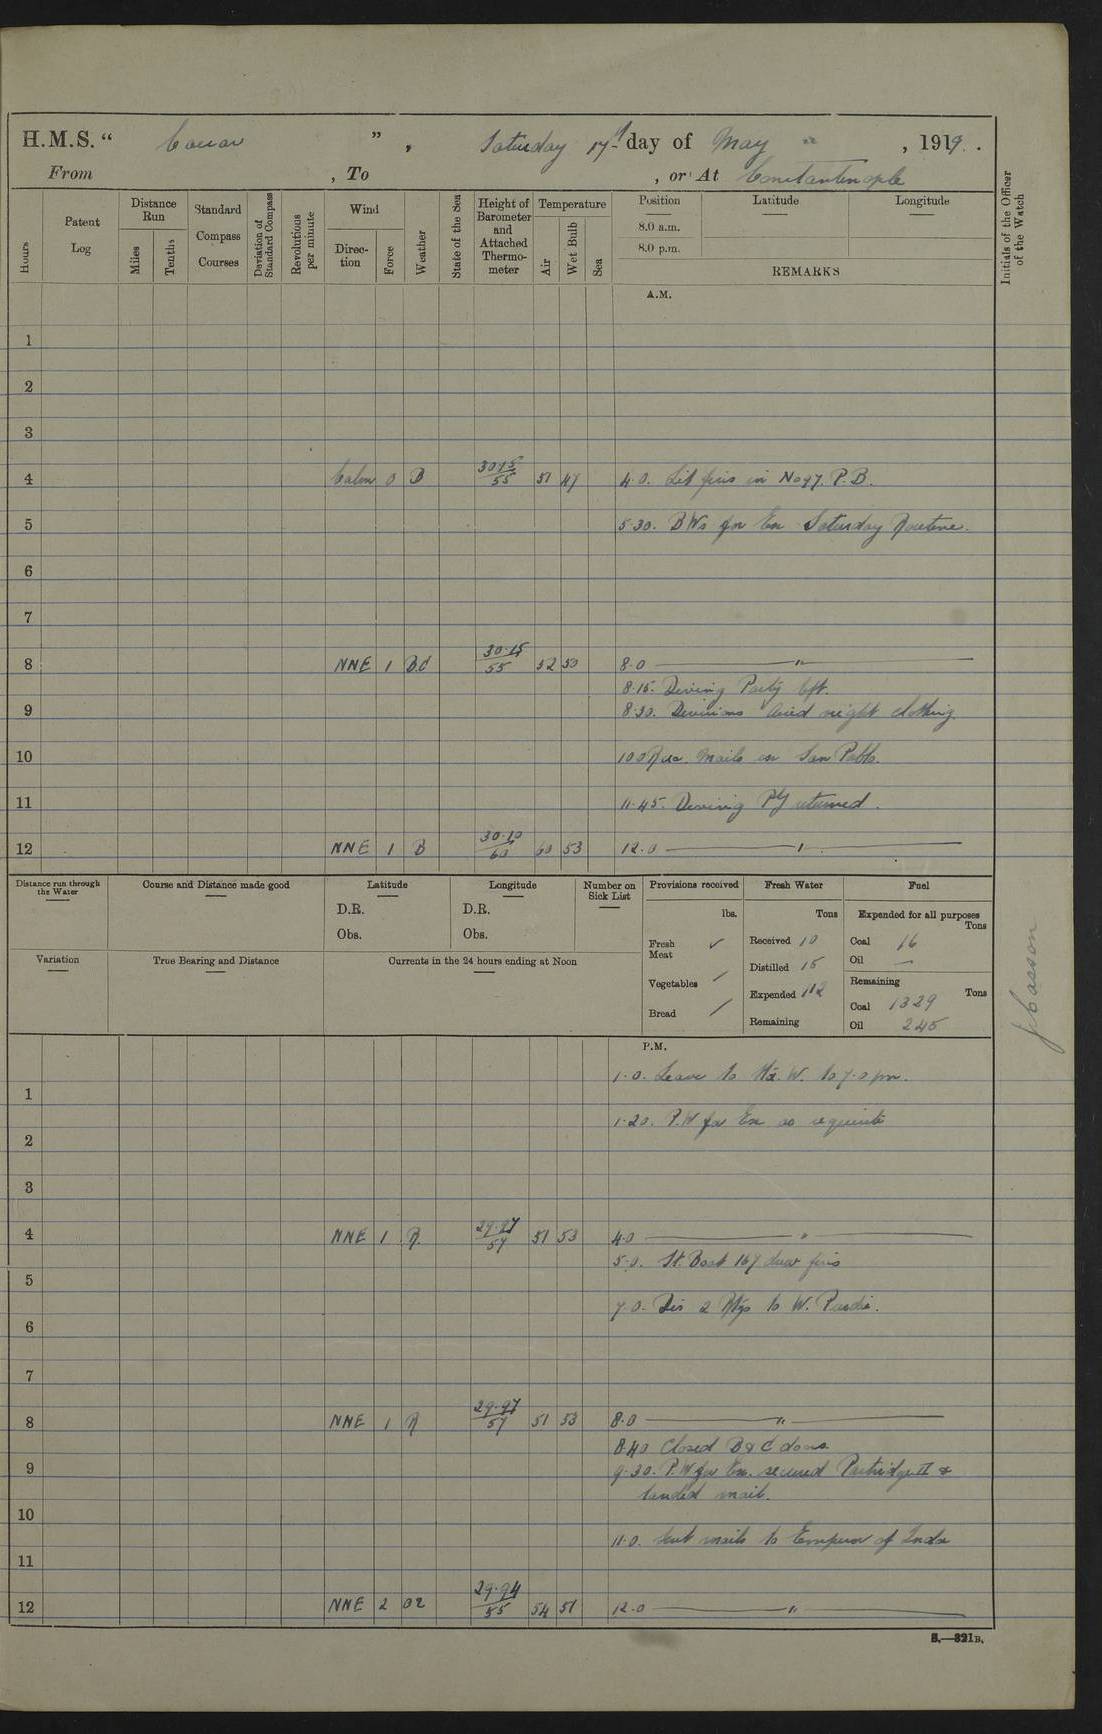 H.M.S. “ Caesar ” , Saturday 17th day of May , 1919.
From , To , or At Constantinople
Hours
Patent Log
Distance Run
Miles
Tenths
Standard Compass Courses
Deviation of Standard Compass
Revolutions per minute
Wind
Direction
Force
Weather
State of the Sea
Height of Barometer and Attached Thermometer
Temperature
Air
Wet Bulb
Sea
Position Latitude Longitude
8.0 a.m.
8.0 p.m.
REMARKS
Initials of the Officer of the Watch
A.M.
1
2
3
4 Calm 0 B 30.15/55 51 47 4.0. Lit fires in No 97. P.B.
5 5.30. BWs for Ex Saturday Routine.
6
7
8 NNE 1 B.C 30.15/55 52 50 8.0 "
8.15. Diving Party left.
9 8.30. Divisions Aired night clothing
10 10.0 Rec. mails in San Pablo.
11 11.45. Diving Pty returned.
12 NNE 1 B 30.10/60 60 53 12.0 "
Distance run through the Water
Course and Distance made good
Latitude
D.R.
Obs.
Longitude
D.R.
Obs.
Number on Sick List
Variation
True Bearing and Distance
Currents in the 24 hours ending at Noon
Provisions received
lbs.
Fresh Meat ✓
Vegetables /
Bread /
Fresh Water
Tons
Received 10
Distilled 15
Expended 112
Remaining
Fuel
Expended for all purposes
Tons
Coal 16
Oil —
Remaining
Tons
Coal 1329
Oil 245
P.M.
1.0. Leave to W. to 7.0 pm.
1
1.20. P.W for Ex as requisite
2
3
4 NNE 1 R. 29.97/57 51 53 4.0 "
5.0. St. Boat 167 drew fires
5
7.0. Dis 2 Rtgs to W.
6
7
8 NNE 1 R 29.97/57 51 53 8.0 "
8.40 Closed B & C doors
9 9.30. P.W for Ex. secured Partridge II &
landed mail.
10
11.0. Sent mails to Emperor of India
11
12 NNE 2 OR 29.94/55 54 51 12.0 "
S.—321B.